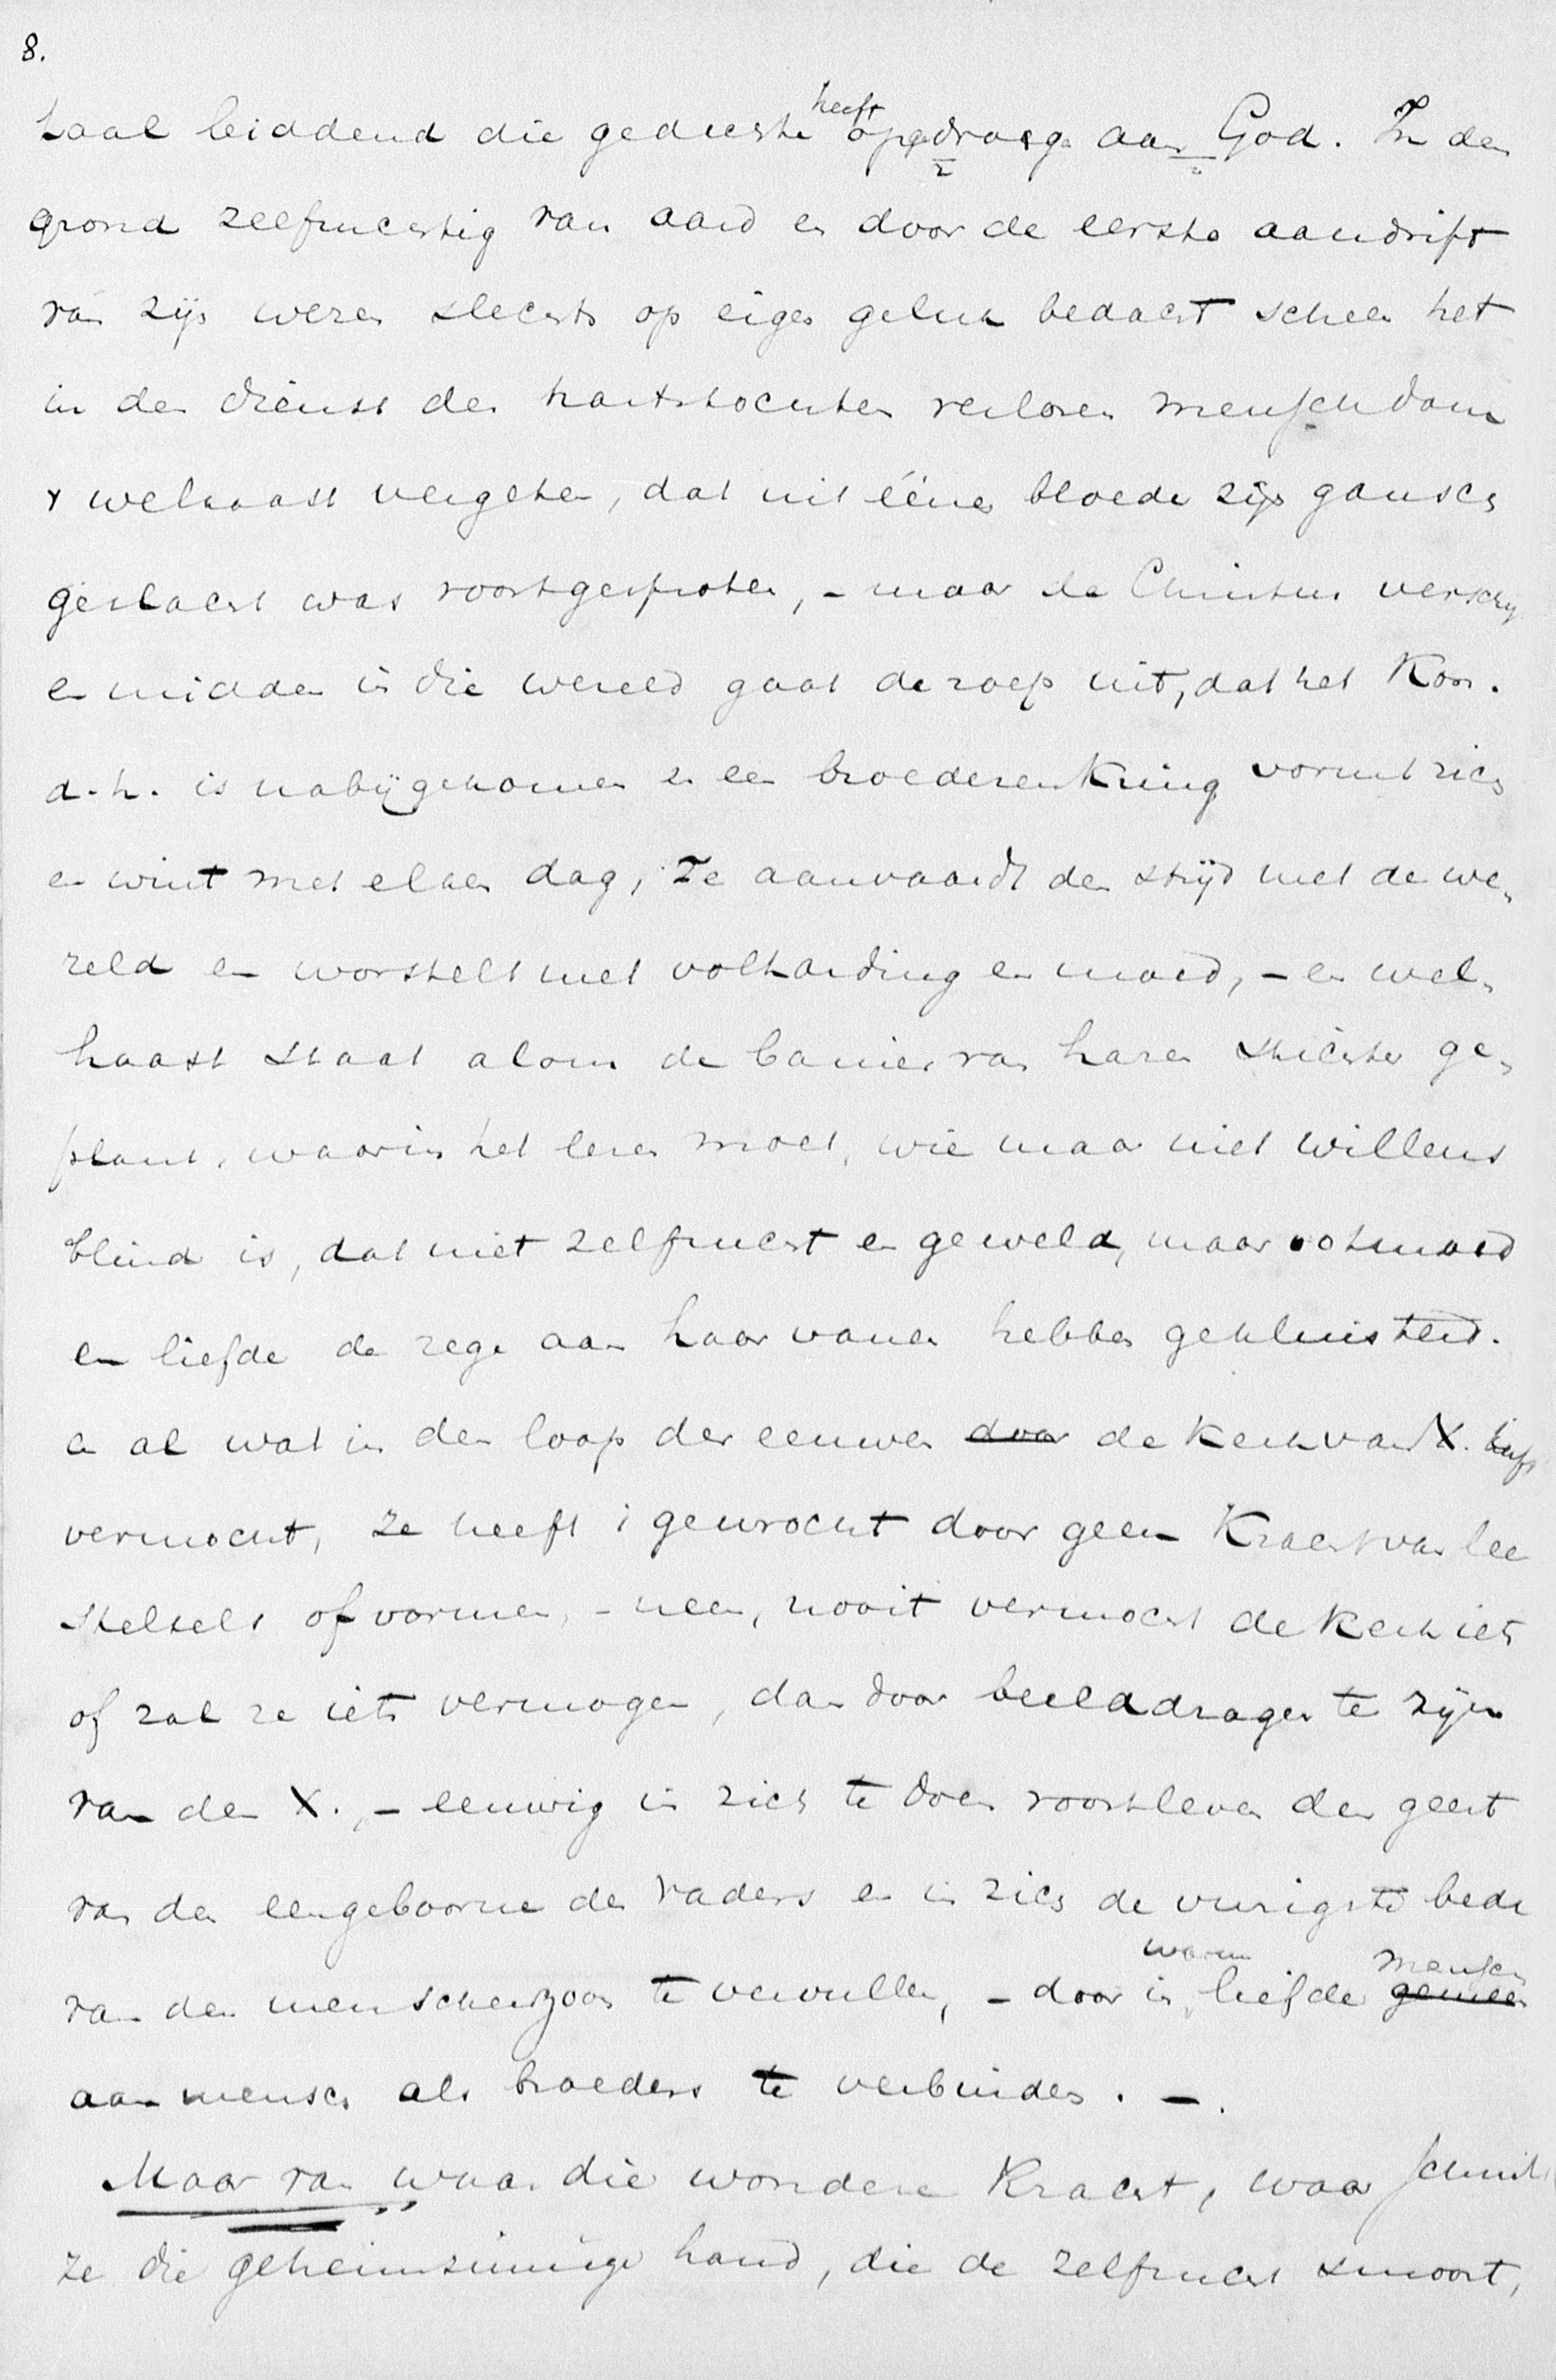 8.
haal biddend die gedachte heeft opgedrage aan God. In den
grond zelfzuchtig van aard en door de eerste aandrift
van zijn wezen slechts op eigen geluk bedacht scheen het
in den dienst der hartstochten verloren menschdom
welhaast vergeten, dat uit éénen bloede zijn gansch
geslacht was voortgesproten, - maar de Christus verschij
en midden in die wereld gaat de roep uit, dat het Kon.
d. h. is nabijgekomen en een broederenkring vormt zich
en wint met elken dag, Ze aanvaardt den strijd met de we-
reld en worstelt met volharding en moed, - en wel-
haast staat alom de banier van haren stichter ge-
plant, waarin het lezen moet, wie maar niet willens
blind is, dat niet zelfzucht en geweld, maar ootmoed
en liefde de zege aan haar vanen hebben gekluisterd.
en al wat in den loop der eeuwen door de kerk van X. heeft
vermocht, ze heeft 't gewrocht door geen Kracht van lee
stelsels of vormen, - neen, nooit vermocht de kerk iets
of zal ze iets vermogen, dan door beelddrager te zijn
van den X., - eeuwig in zich te doen voortleven den geest
van den eengeboorne des Vaders en in zich de vurigste bede
van den menschenzoon te vervullen, - door in warme liefde gemeen mensch
aan mensch als broeders te verbinden. -.
Maar van waar die wondere Kracht, waar schuilt
ze die geheimzinnige hand, die de zelfzucht smoort,